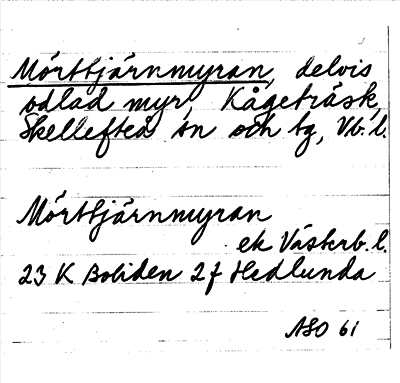 Mörttjärnmyran, delvis
odlad myr, Kågeträsk,
Skellefteå sn och tg, Vb. l.
Mörttjärnmyran
ek Västerb. l.
23 K Boliden 2f Hedlunda
ASO 61